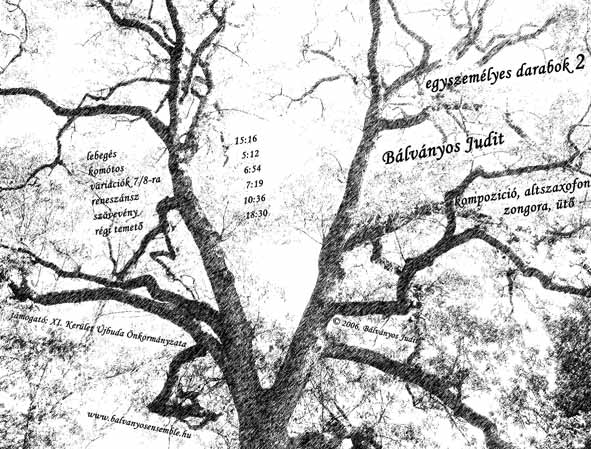 egyszemélyes darabok 2
Bálványos Judit
kompozíció, altszaxofon
zongora, ütő
lebegés 15:16
komótos 5:12
variációk 7/8-ra 6:54
reneszánsz 7:19
szövevény 10:36
régi temető 18:30
támogató: XI. Kerület Újbuda Önkormányzata
© 2006, Bálványos Judit
www.balvanyosensemble.hu